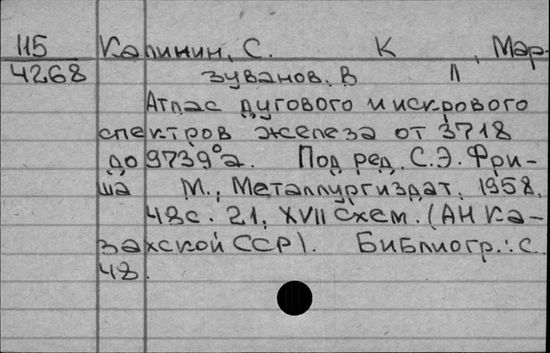 115 Калинин, С. К , Мар
4268 зуванов. В П
Атлас дугового и искрового
спектров железа от 3718
до 9739°а. Под ред. С.Э. Фри-
ша М., Металлургиздат. 1958.
48с. 21, XVII схем. (АН Ка-
захской ССР). Библиогр.: с.
48.